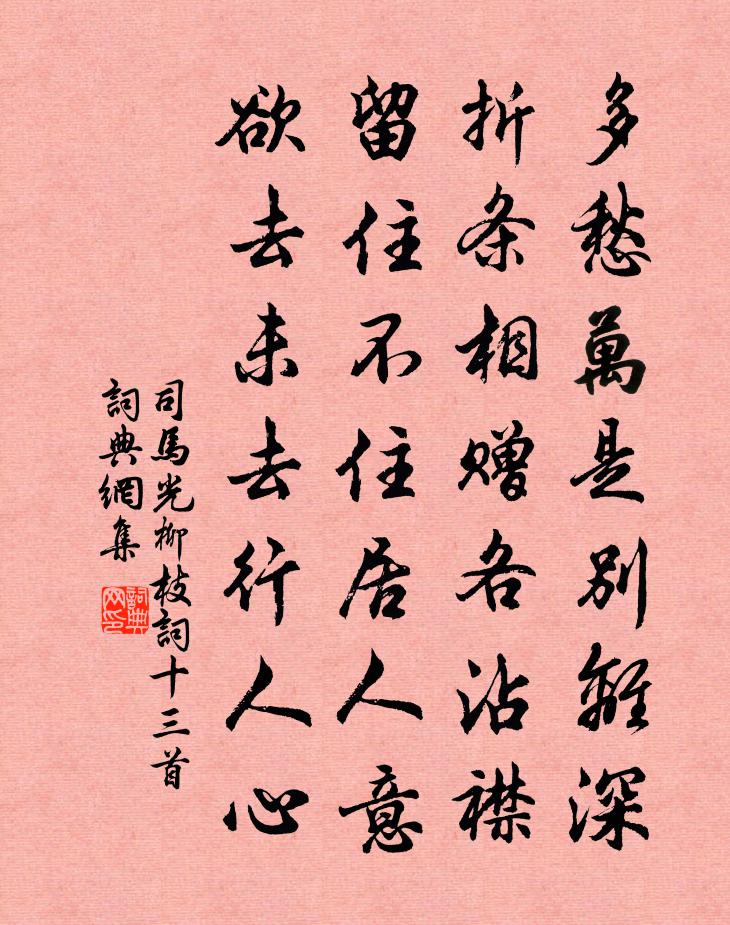 多愁萬是別離深
折条相贈各沾襟
留住不住居人意
欲去未去行人心
司馬光柳枝詞十三首
詞典網集
詞典網印